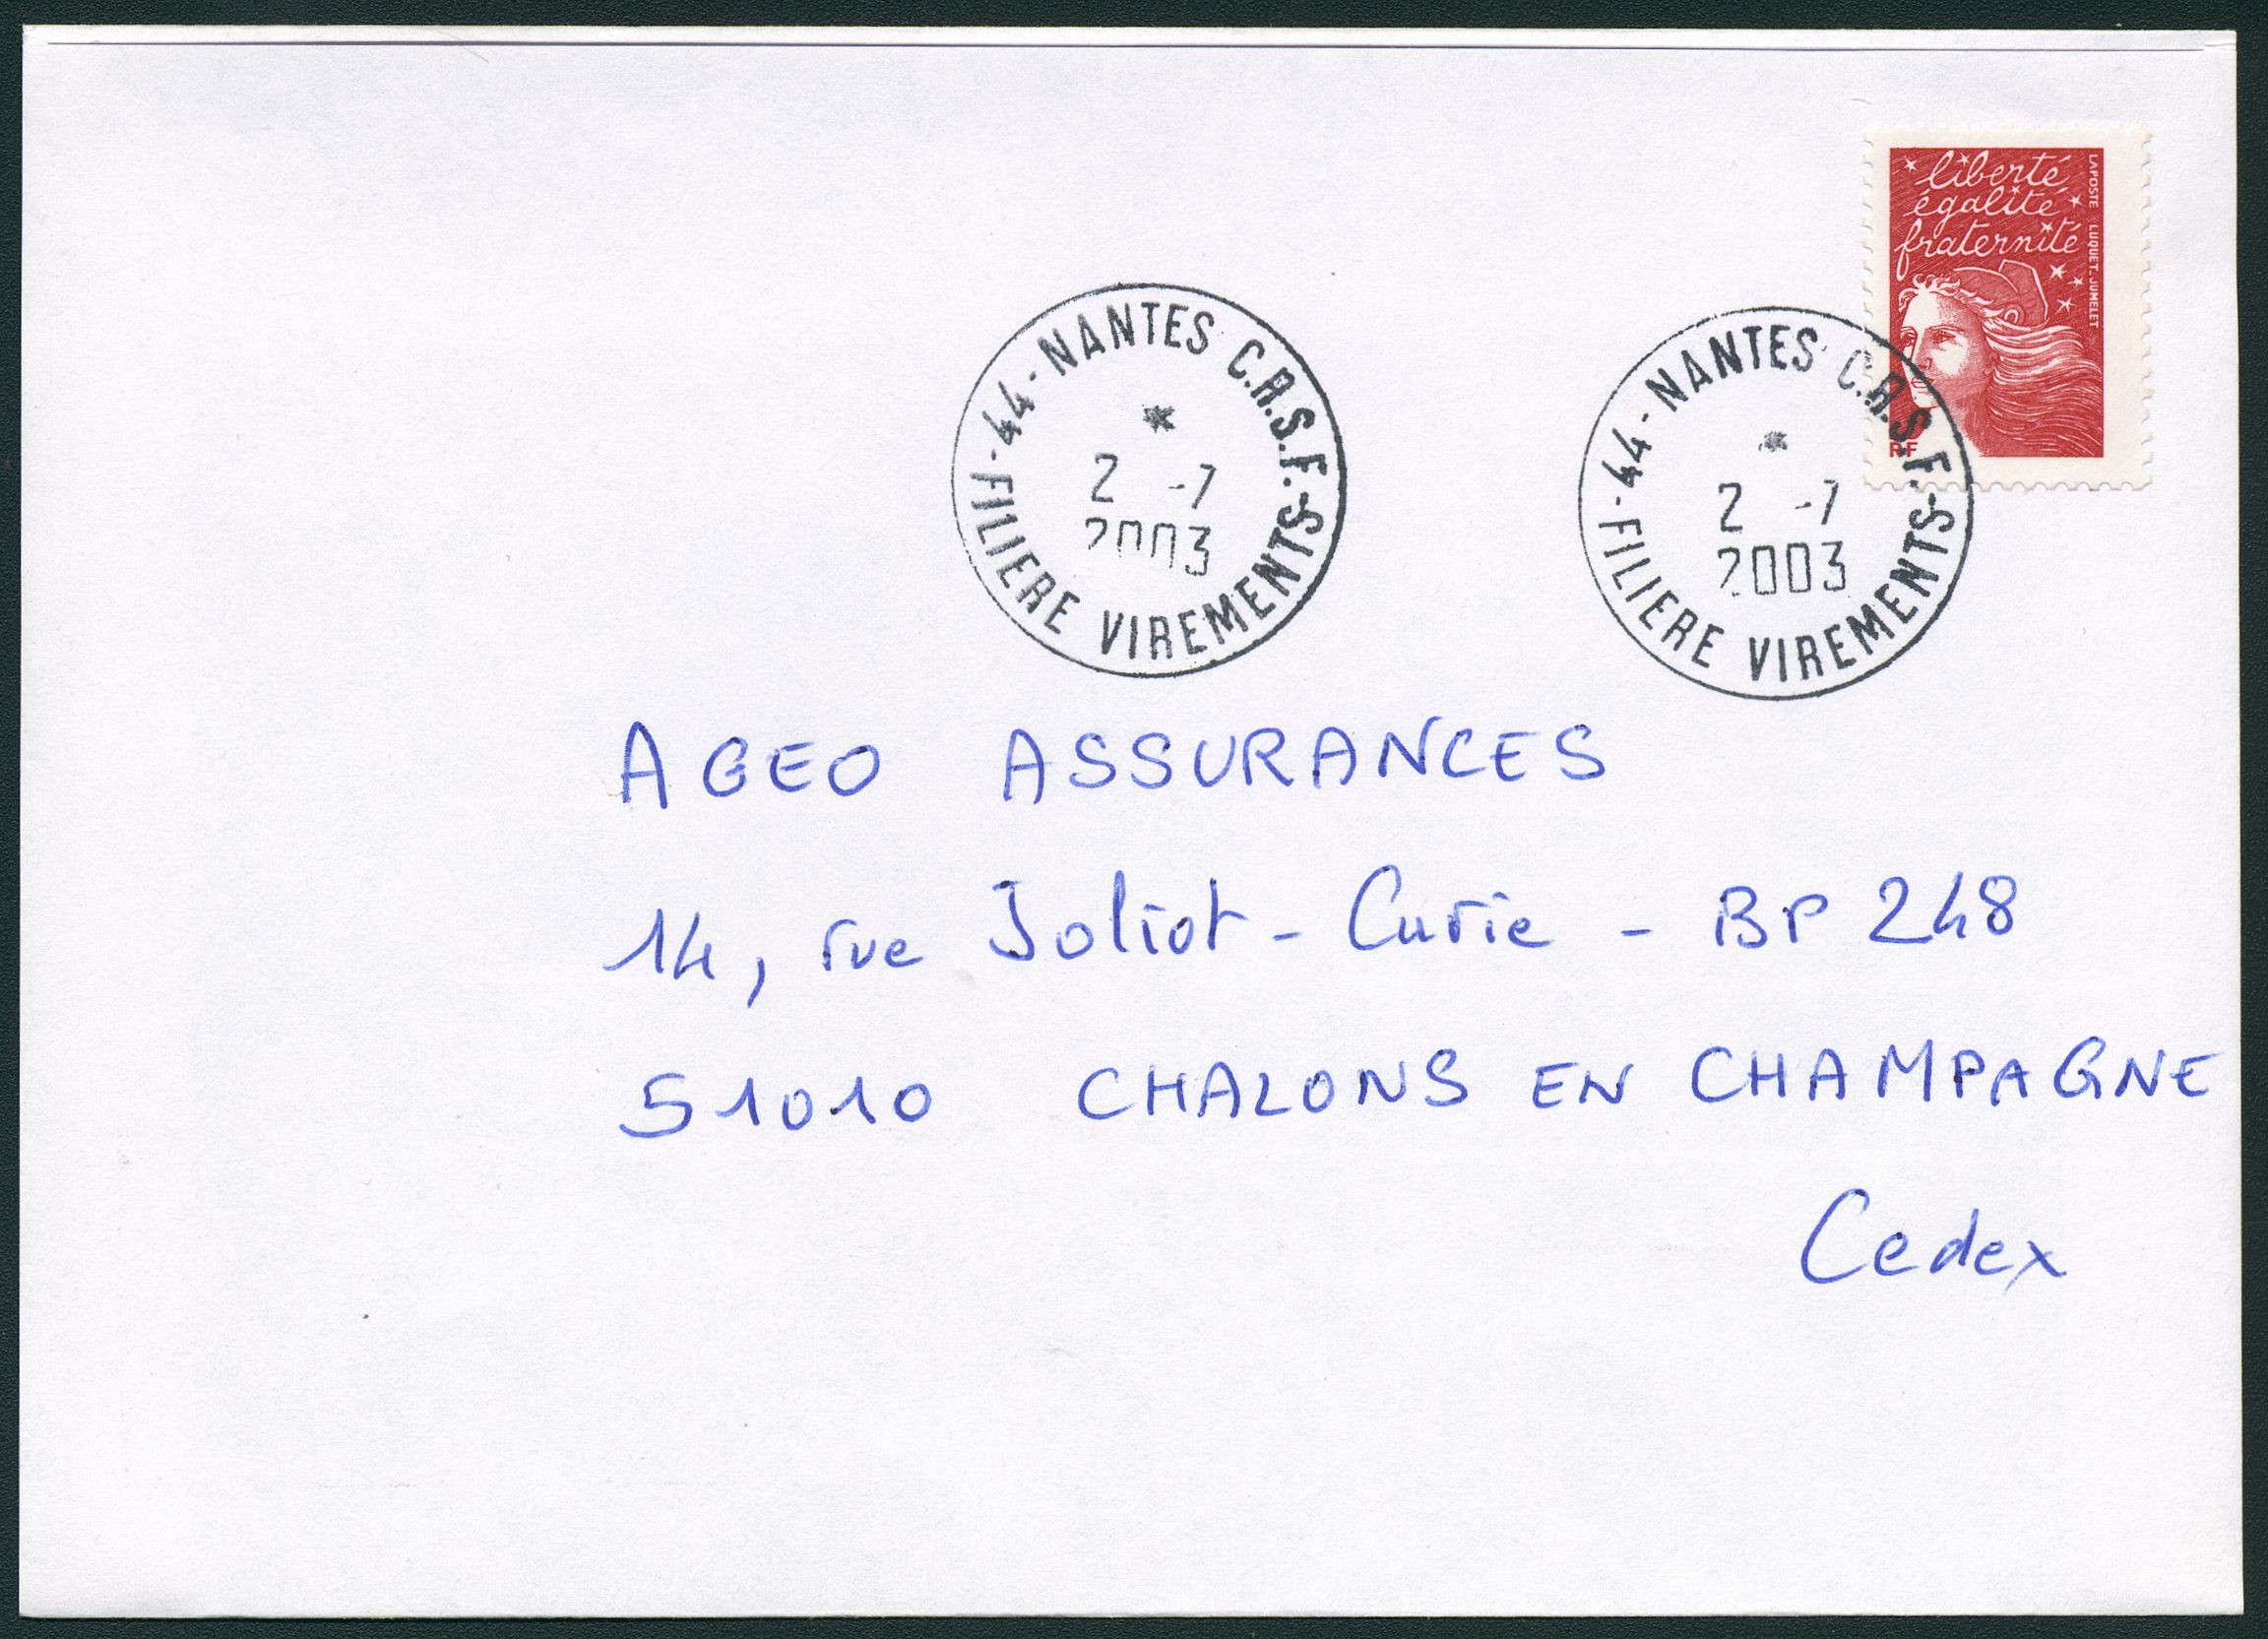 liberté
égalité
fraternité
LA POSTE LUQUET-JUMELET
RF
44-NANTES C.R.S.F.
*
2 -7
2003
-FILIERE VIREMENTS-
44-NANTES C.R.S.F.
*
2 -7
2003
-FILIERE VIREMENTS-
AGEO ASSURANCES
14, rue Joliot-Curie - BP 248
51010 CHALONS EN CHAMPAGNE
Cedex